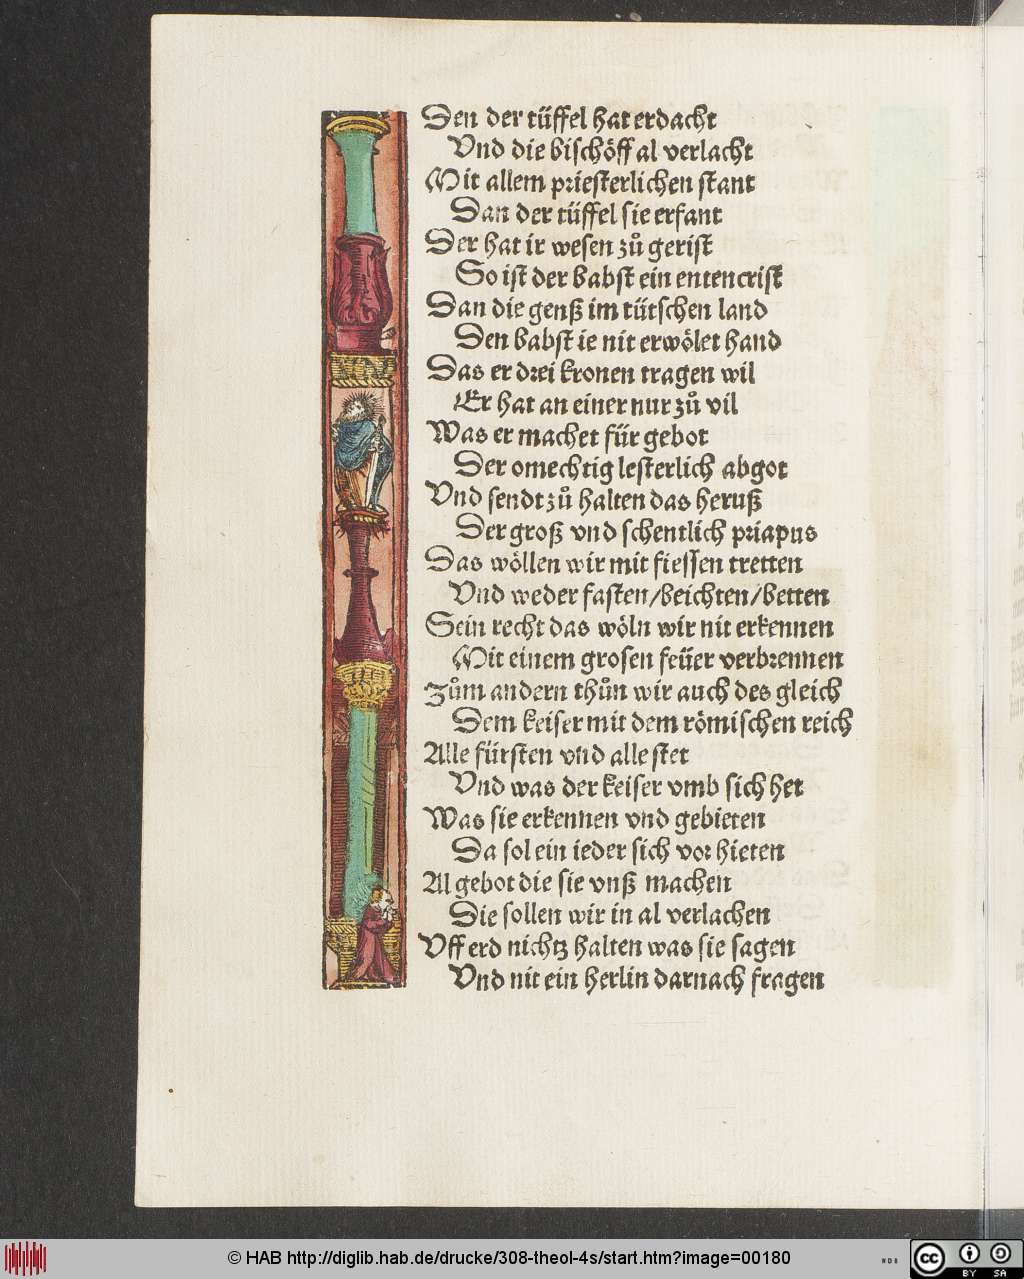 Den der tüffel hat erdacht
Vnd die bischöff al verlacht
Mit allem priesterlichen stant
Dan der tüffel sie erfant
Der hat ir wesen zů gerist
So ist der babst ein entencrist
Dan die genß im tütschen land
Den babst ie nit erwölet hand
Das er drei kronen tragen wil
Er hat an einer nur zů vil
Was er machet für gebot
Der omechtig lesterlich abgot
Vnd sendt zů halten das heruß
Der groß vnd schentlich priapus
Das wöllen wir mit fiessen tretten
Vnd weder fasten/beichten/betten
Sein recht das wöln wir nit erkennen
Mit einem grosen feüer verbrennen
Zům andern thůn wir auch des gleich
Dem keiser mit dem römischen reich
Alle fürsten vnd alle stet
Vnd was der keiser vmb sich het
Was sie erkennen vnd gebieten
Da sol ein ieder sich vor hieten
Al gebot die sie vnß machen
Die sollen wir in al verlachen
Vff erd nichtz halten was sie sagen
Vnd nit ein herlin darnach fragen
© HAB http://diglib.hab.de/drucke/308-theol-4s/start.htm?image=00180
WDB
cc BY SA